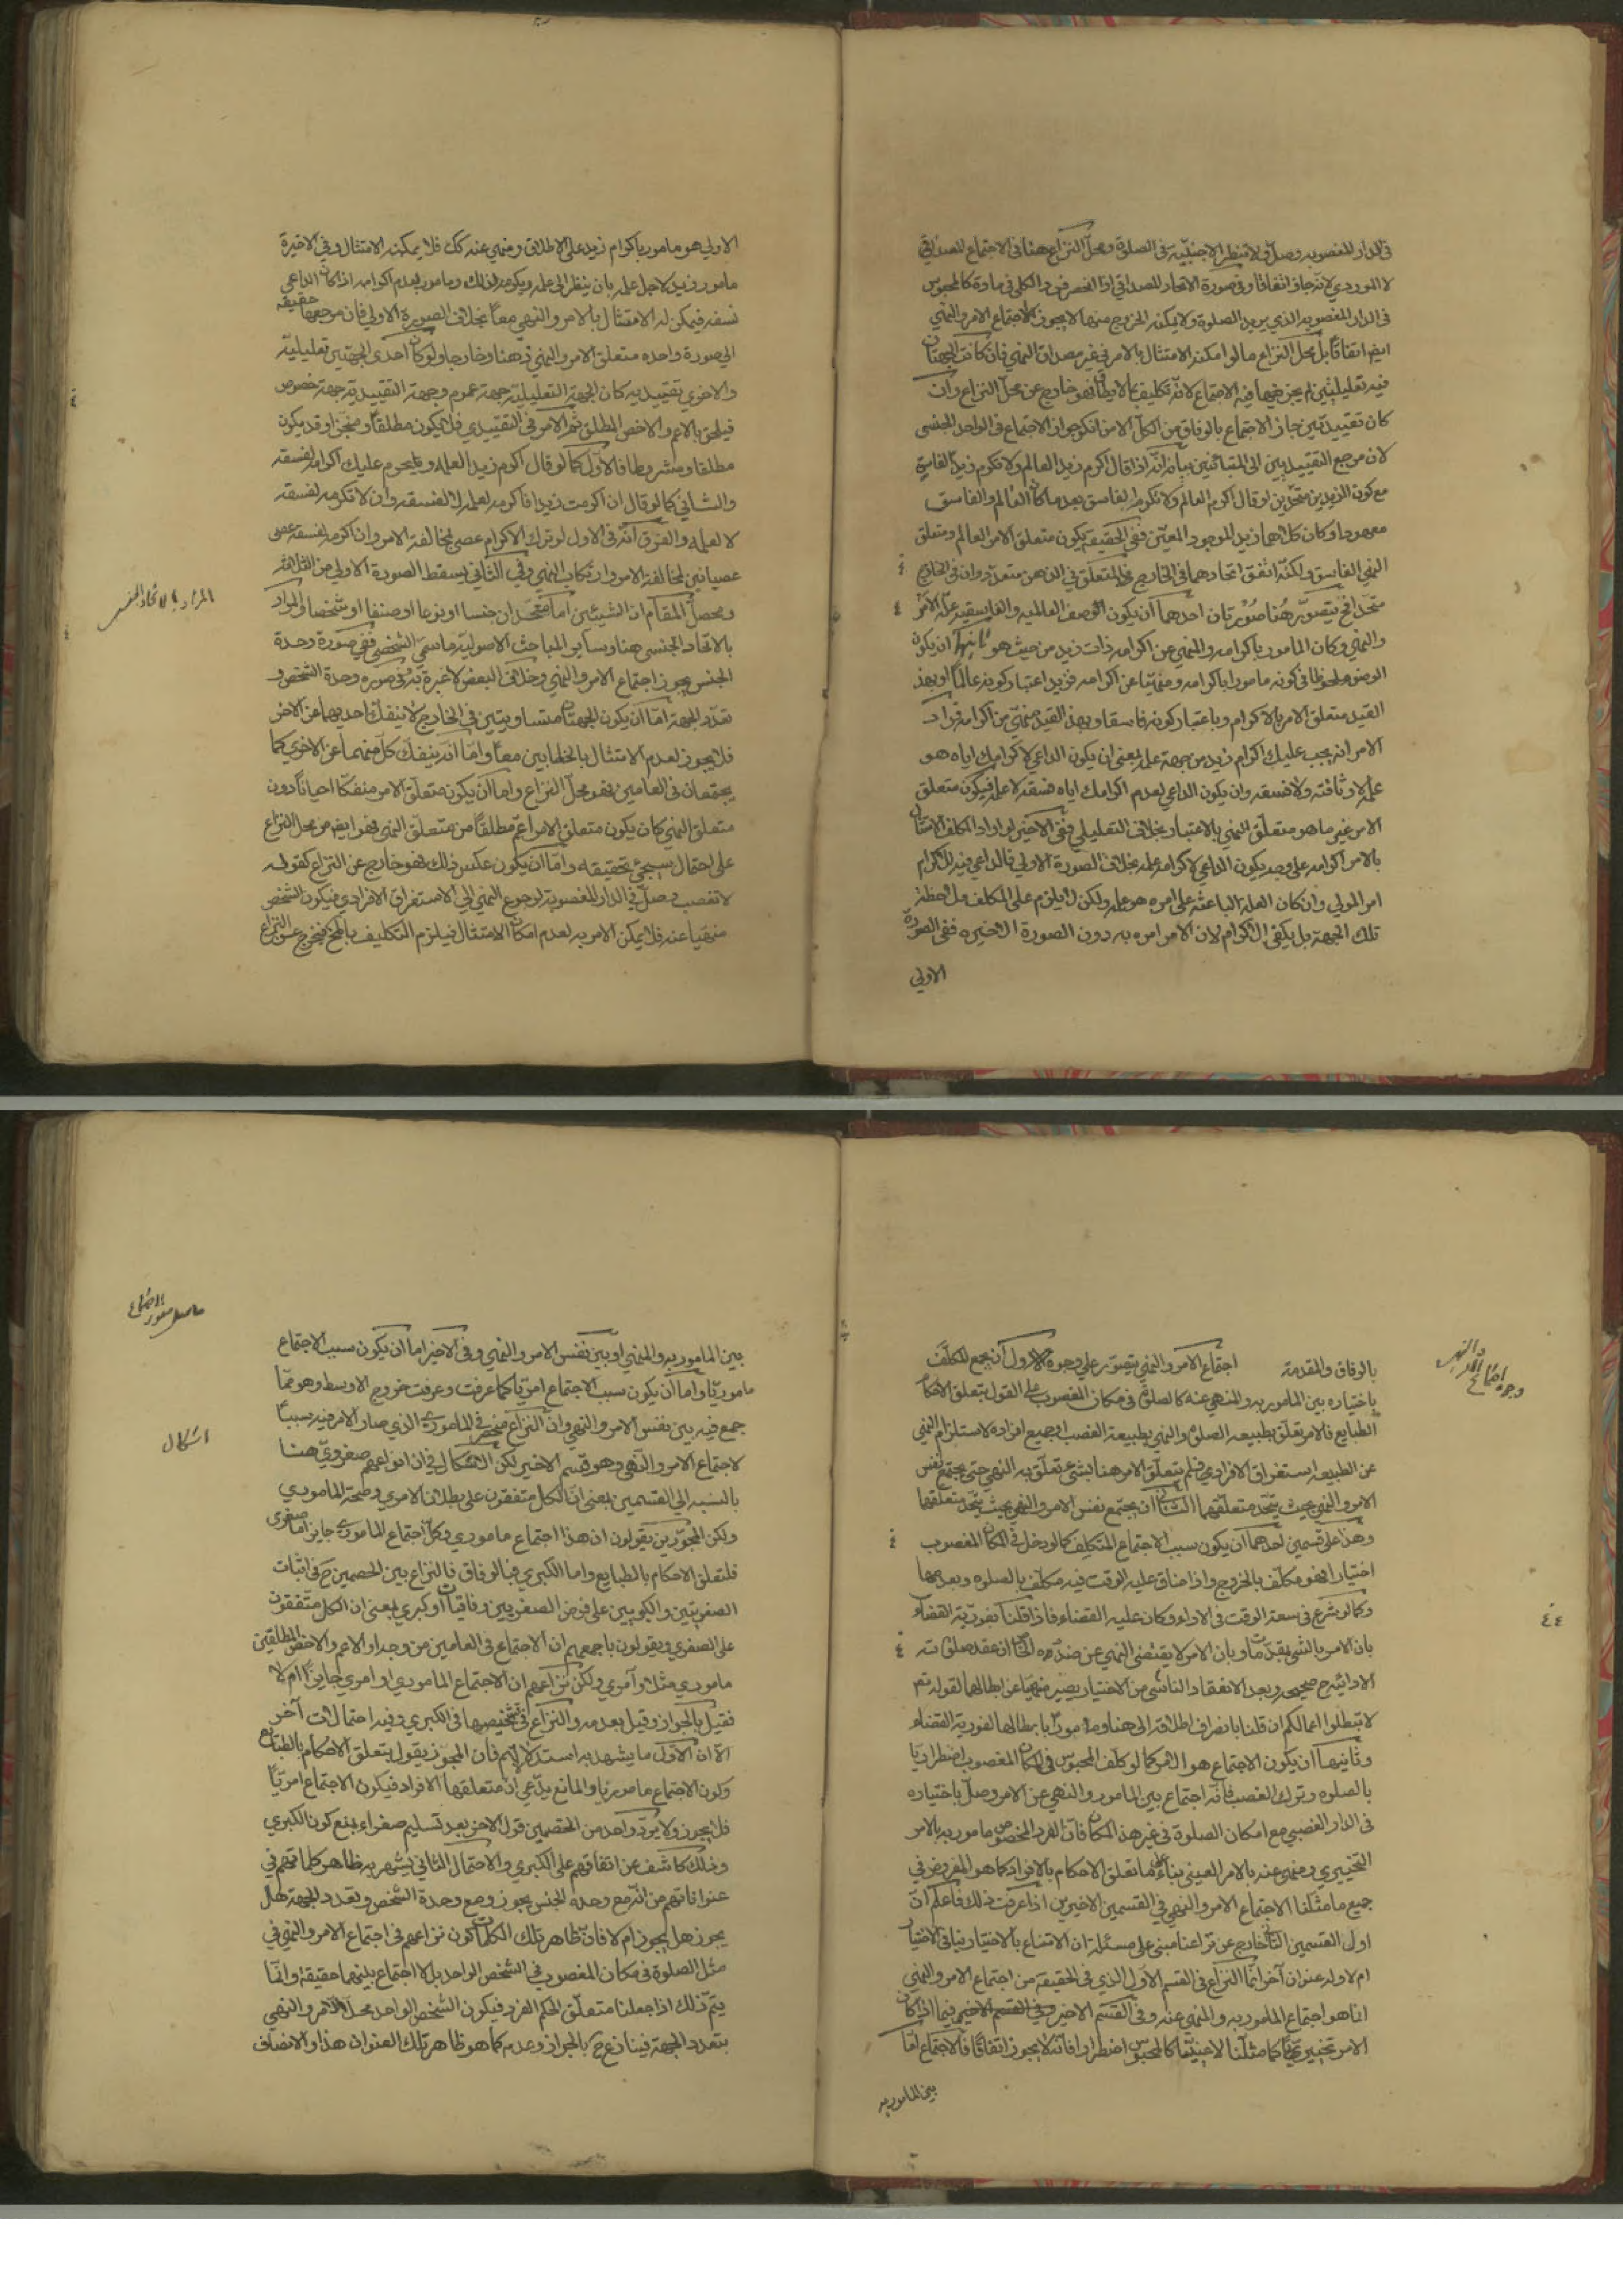 في الدار المغصوبه وصل ولا تنظر الاجنبيّه في الصلوة ومحلّ النزاع هنا في الاجتماع المصداقي
لا الموردي لانه جاز اتفاقا وفي صورة الاتحاد المصداقي اذا انحصر فرد الكلي في مادة كالمحبوس
في الدار المغصوبه الذي يريد الصلوة ولا يمكنه الخروج منها لا يجوز الاجتماع الامر والنهي
ايضا اتفاقاً بل محلّ النزاع ما لو امكنه الامتثال بالامر في غير مصداق النهي فان كانت الجهتان
فيه تعليليتين لم يجز فيها فيه الاجتماع لانّه تكليف بما لا يطاق فهو خارج عن محلّ النزاع وان
كان تقييديّتين جاز الاجتماع بالوفاق من الكلّ الا من انكر جواز الاجتماع في الواحد الجنسي
لان مرجع التقييديين الى المتبائنين بيانه انّه اذا قال اكرم زيد العالم ولا تكرم زيد الفاسق
مع كون الزيدين متحدين او قال اكرم العالم ولا تكرم الفاسق بعد ما كان العالم والفاسق
معهودا وكان كلاهما زيد الموجود المعيّن ففي الحقيقة يكون متعلق الامر العالم ومتعلق
النهي الفاسق ولكنّه اتفق اتحادهما في الخارج فالمتعلق في الذهن متعدّد وان في الخارج
متّحدا فح يتصوّر هنا صورتان احدهما ان يكون الوصف العالميه والفاسقيه علّة الامر
والنهي وكان المأمور باكرامه والمنهي عن اكرامه ذات زيد من حيث هو ثانيها ان يكون
الوصف ملحوظا في كونه مامورا باكرامه ومنهيّا عن اكرامه فزيد اعتبار كونه عالما وبهذ
القيد متعلق الامر بالاكرام وباعتبار كونه فاسقا وبهذ القيد منهيّ عن اكرامه فمراد
الامر انه يجب عليك اكرام زيد من جهة علمه بمعنى ان يكون الداعي لاكرامك اياه هو
علمه لا وثاقته ولا فسقه وان يكون الداعي لعدم اكرامك اياه فسقه لا علمه فيكون متعلق
الامر غير ما هو متعلّق النهي بالاعتبار بخلاف التعليلي ففي الاخير لو اراد المكلف الامتثال
بالامر اكرامه على وجه يكون الداعي لاكرامه علمه بخلاف الصورة الاولى فالداعي فيه للاكرام
امر المولى وان كان العلة الباعثة على امره هو علمه ولكن لا يلزم على المكلف ملاحظة
تلك الجهة بل يكفي الاكرام لان الامر امره به دون الصورة الاخيره ففي الصورة
الاولى
الاولى هو مامور باكرام زيد على الاطلاق ومنهي عنه كك فلا يمكنه الامتثال وفي الاخيرة
مامور زيد لاجل علمه بان ينظر الى علمه ويكرمه لذلك ومامور بعدم اكرامه اذا كان الداعي
فسقه فيمكن له الامتثال بالامر والنهي معاً بخلاف الصورة الاولى فان مرجعها حقيقة
الى صورة واحده متعلق الامر والنهي ذهنا وخارجا ولو كان احدى الجهتين تعليليّة
والاخرى تقييديه كان الجهة التعليليّة جهة عموم وجهة التقييديّة جهة خصوص
فيلحق بالاعم والاخص المطلق ثم الامر في التقييدي قد يكون مطلقا ومنجزا وقد يكون
مطلقا ومشروطا فالاول كما لو قال اكرم زيد العلمه ويحرم عليك اكرامه لفسقه
والثاني كما لو قال ان اكرمت زيدا فاكرمه لعلمه لا لفسقه وان لا تكرمه لفسقه
لا لعلمه والفرق انّه في الاول لو ترك الاكرام عصى لمخالفة الامر وان اكرمه لفسقه عصى
عصيانين لمخالفة الامر وارتكاب النهي وفي الثاني يسقط الصورة الاولى من الثلاثة
ومحصل المقام ان الشيئين اما متحدان جنسا او نوعا او صنفا او شخصا والمراد
بالاتحاد الجنسي هنا وبساير المباحث الاصوليّة ما سمّي الشخصي ففي صورة وحدة
الجنس يجوز اجتماع الامر والنهي وخلاف البعض لا عبرة به وفي صوره وحدة الشخص و
تعدد الجهة امّا ان يكون الجهتان متساويتين في الخارج لا ينفك احديهما عن الاخر
فلا يجوز لعدم الامتثال بالخطابين معا وامّا ان ينفك كلّ منهما عن الاخرى كما
يجتمعان في العامين فهو محلّ النزاع واما ان يكون متعلّق الامر منفكّا احياناً دون
متعلق النهي كان يكون متعلق الامر اعمّ مطلقا من متعلّق النهي فهو ايضا من محل النزاع
على احتمال سيجئ تحقيقه وامّا ان يكون عكس ذلك فهو خارج عن النزاع كقوله
لا تغصب وصلّ في الدار المغصوبة لرجوع النهي الى الاستغراق الافرادي فيكون الشخص
منهيا عنه فلا يمكن الامر به لعدم امكان الامتثال فيلزم التكليف بالمح فيخرج عن النزاع
المراد بالاتحاد الجنسي
بالوفاق والمقدمة اجتماع الامر والنهي يتصوّر على وجوه الاول ان يجمع المكلّف
باختياره بين المامور به والمنهي عنه كالصلوة في مكان المغصوب على القول بتعلق الاحكام
الطبايع فالامر تعلّق بطبيعة الصلوة والنهي بطبيعة الغصب او جميع افراده لاستلزام النهي
عن الطبيعه استغراق الافرادي فلم يتعلّق الامر هنا بشئ تعلّق به النهي حتى يجتمع نفس
الامر والنهي بحيث يتّحد متعلّقهما الثاني ان يجتمع نفس الامر والنهي بحيث يتّحد متعلّقهما
وهذا على قسمين احدهما ان يكون سبب الاجتماع المتكلف كما لو دخل في المكان المغصوب
اختيارا فهو مكلّف بالخروج واذا ضاق عليه الوقت فيه مكلّف بالصلوة وبعدمها
وكما لو شرع في سعة الوقت في الاداء وكان عليه القضاء فاذا قلنا بفوريّة القضاء
بان الامر بالشئ مقدّما وبان الامر لا يقتضي النهي عن ضده ان عقد صلوته
الادائيّة صحيحه وبعد الانعقاد الناشي من الاختيار يصير منهيّا عن ابطالها لقوله تعم
لا تبطلوا اعمالكم ان قلنا بانصراف اطلاقه الى هنا ومامورا بابطالها لفورية القضاء
وثانيهما ان يكون الاجتماع هو الامر كما لو كلّف المحبوس في المكان المغصوب اضطرابيا
بالصلوه وترك الغصب فانّه اجتماع بين المامور والنهي عن الامر وصلّ باختياره
في الدار الغصبي مع امكان الصلوة في غير هذا المكان فان الفرد المخصوص مامور به بالامر
التخييري ومنهي عنه بالامر العيني بناء على تعلق الاحكام بالافراد كما هو المفروض في
جميع ما مثلنا الاجتماع الامر والنهي في القسمين الاخيرين اذا عرفت ذلك فاعلم انّ
اول القسمين الثاني خارج عن نزاعنا مبني على مسئلة ان الامتناع بالاختيار ينافي الاختيار
ام لا وله عنوان آخر انما النزاع في القسم الاول الذي في الحقيقة من اجتماع الامر والنهي
انما هو اجتماع المامور به والمنهي عنه وفي القسم الاخير فيما اذا كان
الامر تخييريّا كما مثلنا لا عينيّا كالمحبوس اضطرارا فانّه لا يجوز اتفاقا فالاجتماع امّا
بين المامور به
وجوه اجتماع الامر والنهي
٤٤
بين المامور به والمنهي او بين نفس الامر والنهي وفي الاخير اما ان يكون سبب الاجتماع
مامورّيا واما ان يكون سبب الاجتماع امريّا كما عرفت وعرفت خروج الاوسط وهو ممّا
جمع فيه بين نفس الامر والنهي وانّ النزاع منحصر في المامورى الذي صار الامر فيه سببا
لاجتماع الامر والنهي وهو قسم الاخير لكن الاشكال في ان نزاعهم صغرويّ هنا
بالنسبه الى القسمين بمعنى ان الكل متفقون على بطلان الامري وصحّة المامورى
ولكن المجوّزين يقولون ان هذا اجتماع ماموري وكل اجتماع المامورى جايز اما صغرى
فلتعلق الاحكام بالطبايع واما الكبرى فبالوفاق فالنزاع بين الخصمين ح في اثبات
الصغريتين والكبريين على فرض الصغريين وفاقيتان او كبرى بمعنى ان الكل متّفقون
على الصغرى ويقولون باجمعهم ان الاجتماع في العامين من وجه او الاعم والاخص المطلقين
ماموري مثلا او آمري ولكن نزاعهم ان الاجتماع الماموري او امري جايز ام لا
فقيل بالجواز وقيل بعدمه والنزاع في تشخيصها في الكبرى وفيه احتمالات آخر
الّا ان الاوّل ما يشهد به استدلالهم فان المجوّز يقول بتعلق الاحكام بالطبايع
وكون الاجتماع ماموريّا والمانع يدّعي ان متعلقها الافراد فيكون الاجتماع امريّا
فلا يجوز ولا يردّ واحد من الخصمين قول الاخر بعد تسليم صغراه بمنع كون الكبرى
وذلك كاشف عن اتفاقهم على الكبرى والاحتمال الثاني يشهد به ظاهر كلماتهم في
عنواناتهم من انّه مع وحدة الجنس يجوز ومع وحدة الشخص وتعدد الجهة هل
يجوز هل يجوز ام لا فان ظاهر تلك الكلمات كون نزاعهم في اجتماع الامر والنهي في
مثل الصلوة في مكان المغصوب في الشخص الواحد بل الاجتماع بينهما حقيقة وانّما
يتمّ ذلك اذا جعلنا متعلّق الحكم الفرد فيكون الشخص الواحد محلّ الامر والنهي
بتعدد الجهة فينازع ح بالجواز وعدمه كما هو ظاهر تلك العنوان هذا والانصاف
حاصل صور الاجتماع
اشكال